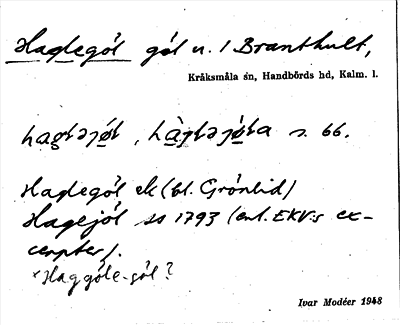 Hagtegöl göl n. I Branthult,
Kråksmåla sn, Handbörds hd, Kalm. l.
s. 66.
Haglegöl ek (bl. Grönlid)
Hagejöl ss 1793 (enl. EKV:s ex-
cerpter).
*Haggöle-göl?
Ivar Modéer 1948